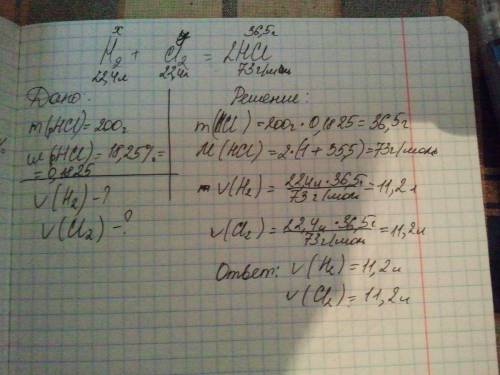 x y 36,5г
H₂ + Cl₂ = 2HCl
22,4л 22,4л 73г/моль
Дано:
m(HCl)=200г
w(HCl)=18,25%=
=0,1825
V(H₂)-?
V(Cl₂)-?
Решение:
m(HCl)=200г·0,1825=36,5г
M(HCl)=2·(1+35,5)=73г/моль
V(H₂)=22,4л·36,5г/73г/мол=11,2л
V(Cl₂)=22,4л·36,5г/73г/мол=11,2л
Ответ: V(H₂)=11,2л
V(Cl₂)=11,2л